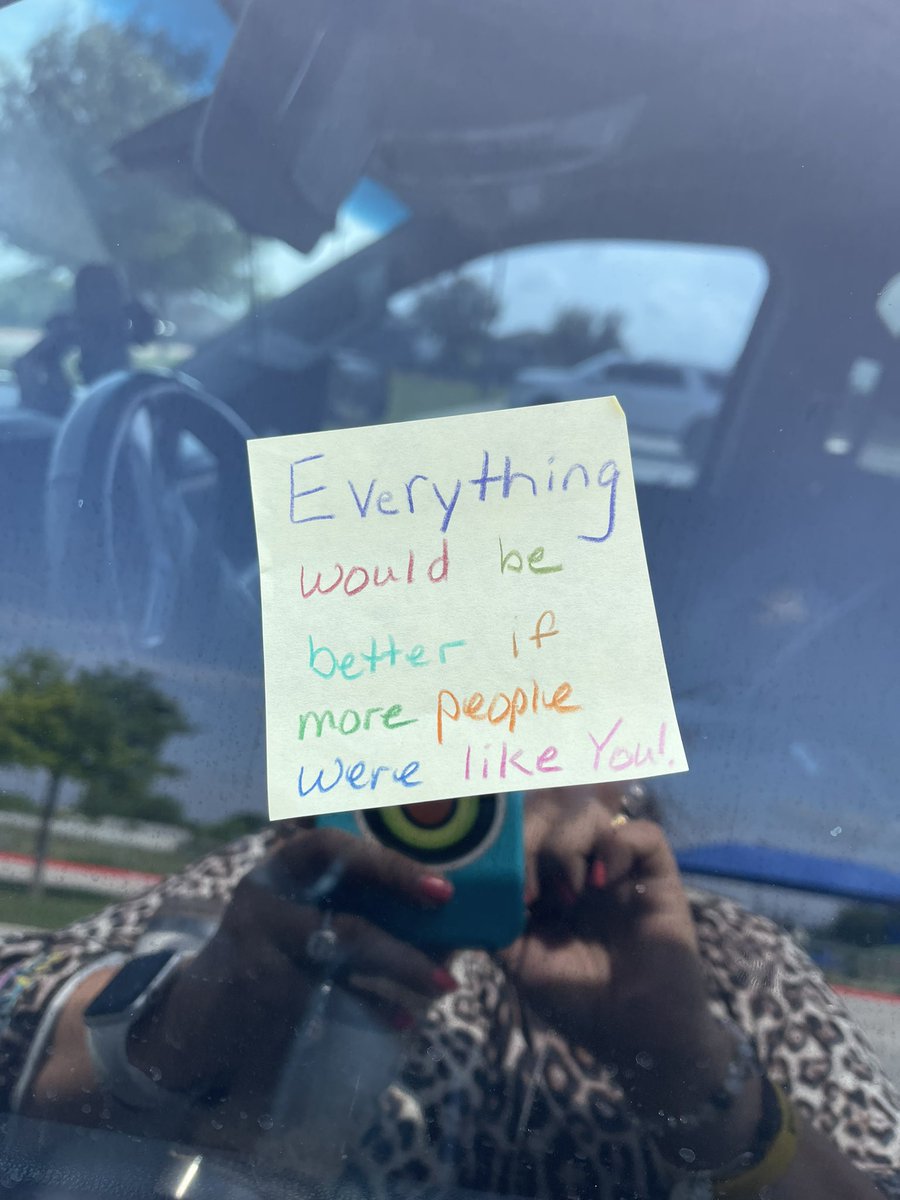 Everything
would be
better if
more people
were like You!